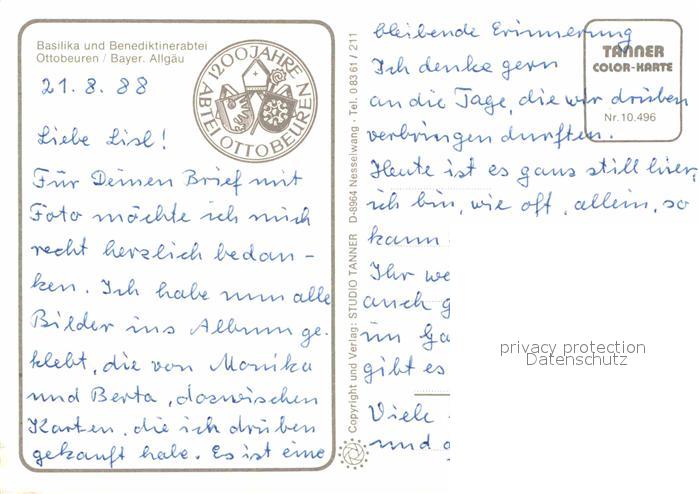 Basilika und Benediktinerabtei
Ottobeuren / Bayer. Allgäu
1200 JAHRE
ABTEI OTTOBEUREN
21. 8. 88
Liebe Lisl!
Für Deinen Brief mit
Foto möchte ich mich
recht herzlich bedan -
ken. Ich habe nun alle
Bilder ins Album ge-
klebt, die von Monika
und Berta, dazwischen
Karten, die ich drüben
gekauft habe. Es ist eine
Copyright und Verlag: STUDIO TANNER D-8964 Nesselwang - Tel. 0 83 61 / 211
TANNER
COLOR-KARTE
Nr. 10.496
bleibende Erinnerung
Ich denke gern
an die Tage, die wir drüben
verbringen durften.
Heute ist es ganz still hier,
ich bin, wie oft, allein, so
kann
Ihr we
auch g
im Ga
gibt es
Viele
und
privacy protection
Datenschutz